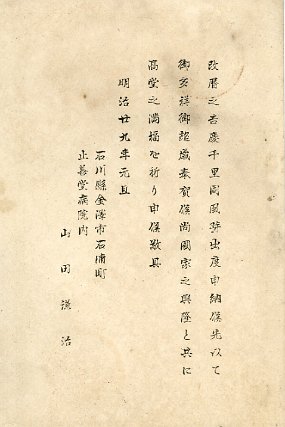 改暦之吉慶千里同風芽出度申納候先以て
御多祥御超歳奉賀候尚國家之興隆と共に
高堂之満福を祈り申候敬具
明治廿九年元旦
石川縣金澤市石浦町
止善堂病院内
山田謙治